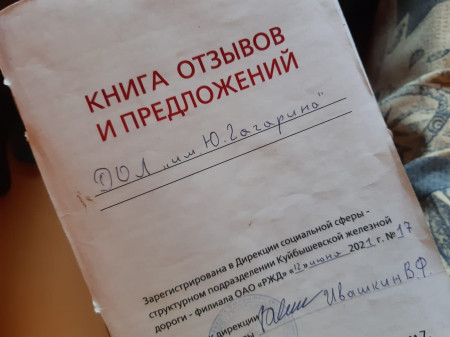 КНИГА ОТЗЫВОВ
И ПРЕДЛОЖЕНИЙ
ДОЛ „им. Ю. Гагарина"
Зарегистрирована в Дирекции социальной сферы -
структурном подразделении Куйбышевской железной
дороги - филиала ОАО «РЖД» «17» июня 2021 г. № 17
дирекции
Ивашкин В.Ф.